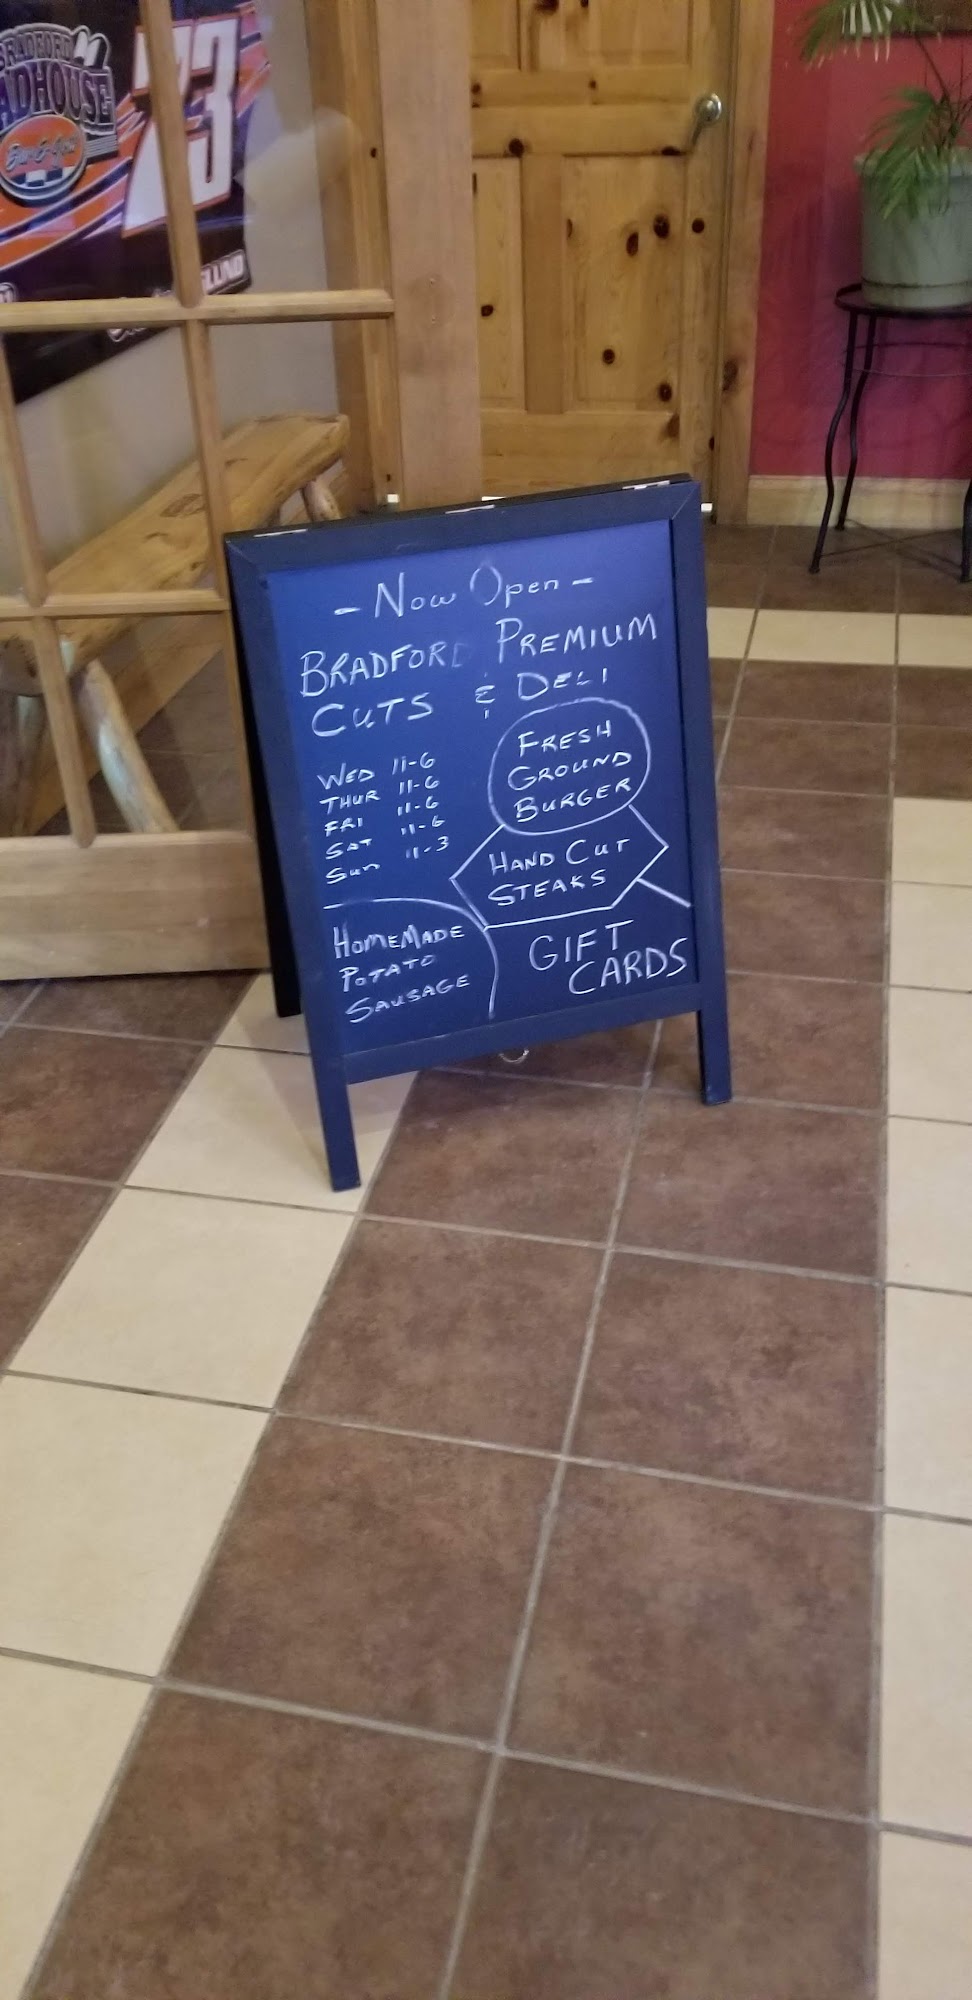 BRADFORD
ADHOUSE
Bar & Grill
73
LUND
- Now Open -
BRADFORD PREMIUM
CUTS & DELI
WED 11-6
THUR 11-6
FRI 11-6
SAT 11-6
SUN 11-3
FRESH
GROUND
BURGER
HAND CUT
STEAKS
HOMEMADE
POTATO
SAUSAGE
GIFT
CARDS